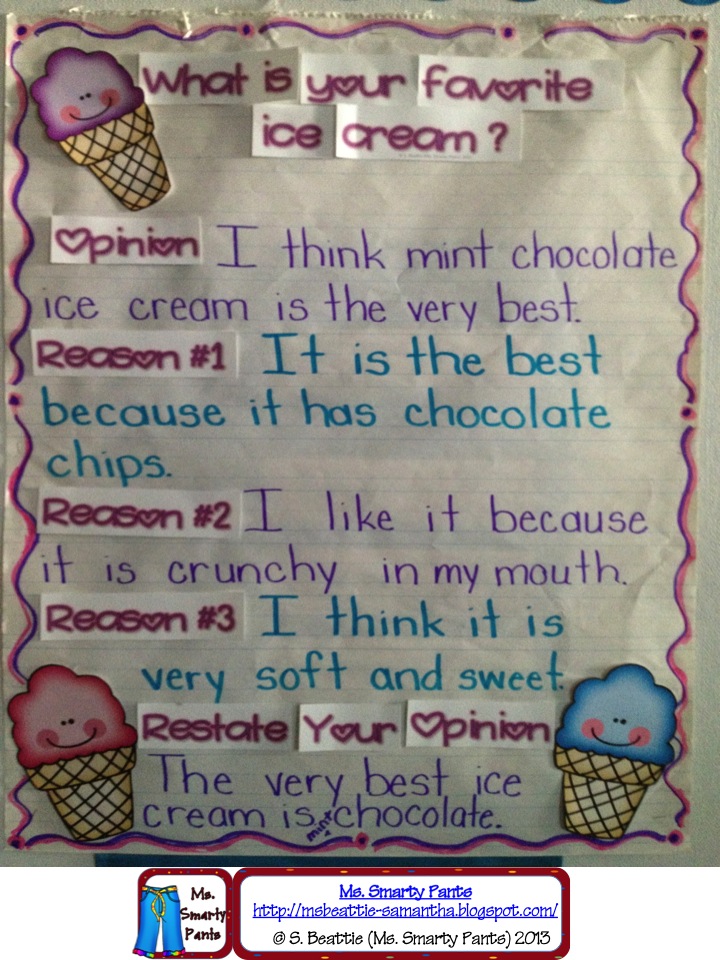 What is your favorite
ice cream?
Opinion I think mint chocolate
ice cream is the very best.
Reason #1 It is the best
because it has chocolate
chips.
Reason #2 I like it because
it is crunchy in my mouth.
Reason #3 I think it is
very soft and sweet.
Restate Your Opinion
The very best ice
cream is mint chocolate.
Ms.
Smarty
Pants
Ms. Smarty Pants
http://msbeattie-samantha.blogspot.com/
© S. Beattie (Ms. Smarty Pants) 2013